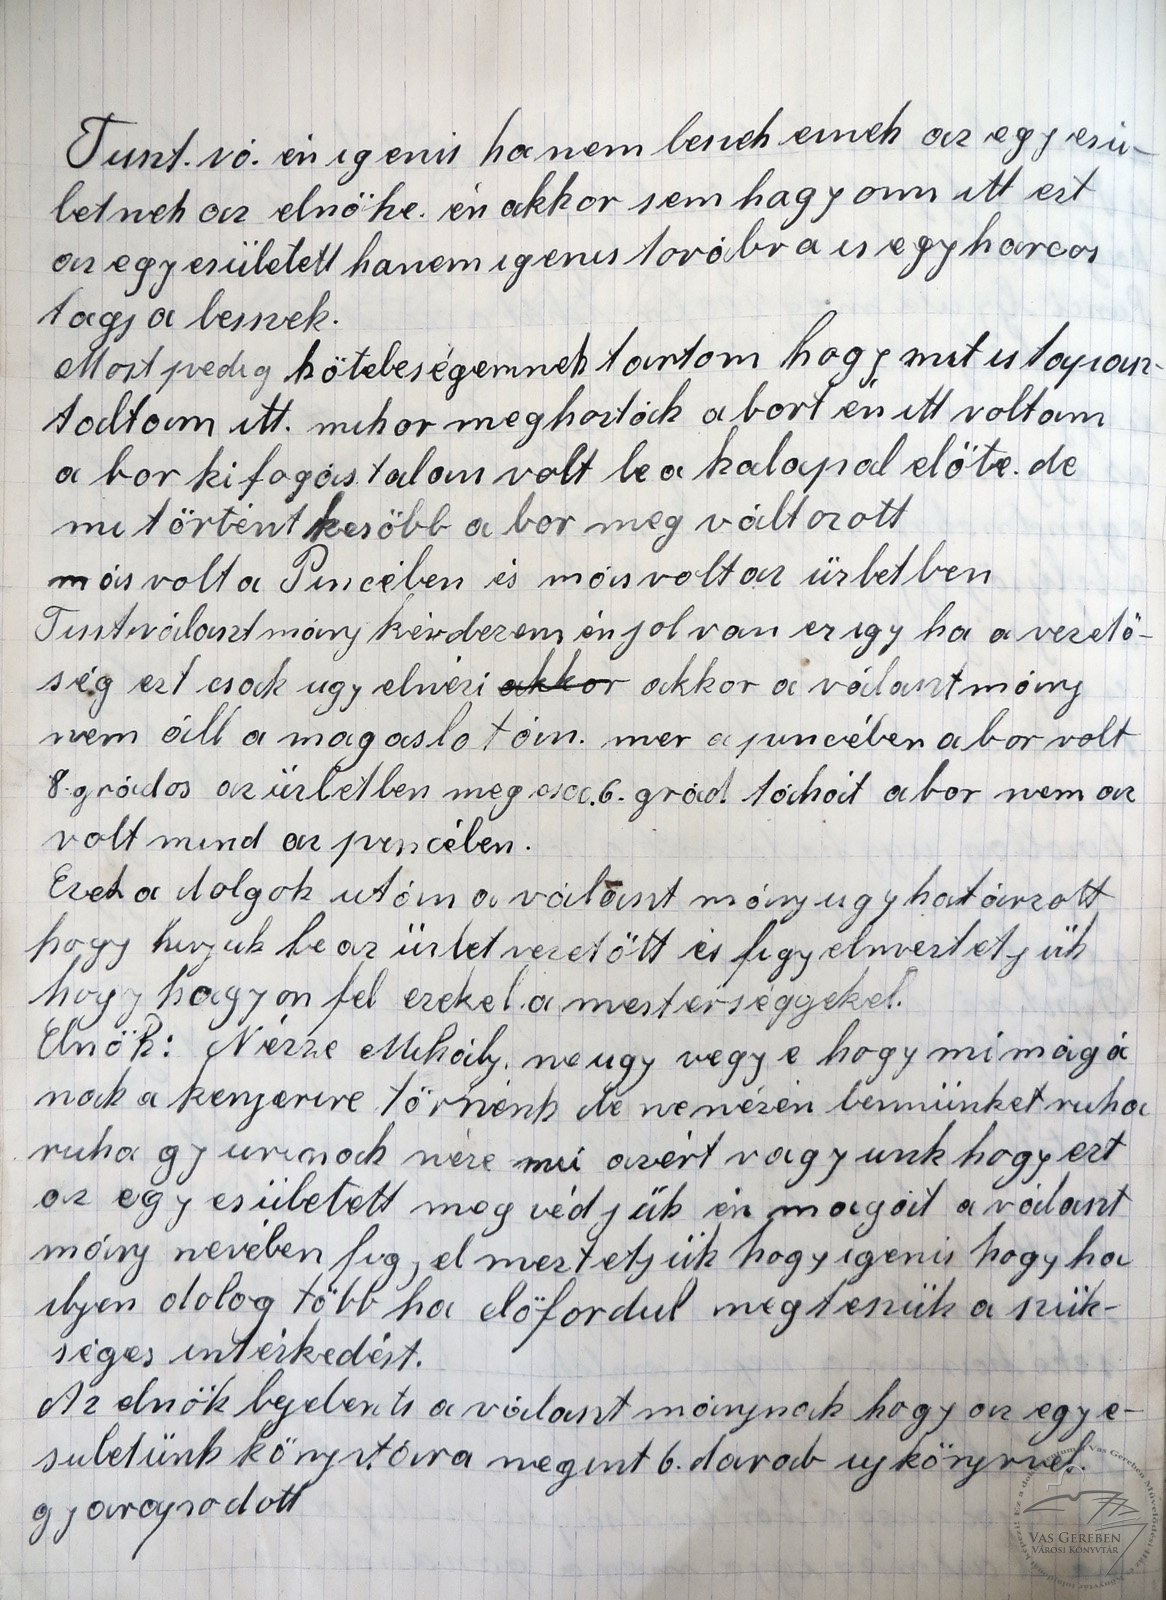 Tiszt. vá. én igenis ha nem leszek ennek az egyesü-
letnek az elnöke. én akkor sem hagyom itt ezt
az egyesületett hanem igenis továbra is egy harcos
tagja leszek.
Most pedig kötelességemnek tartom hogy mit is tapasz-
taltam itt. mikor meghozták a bort én itt voltam
a bor kifogástalan volt le a kalapal elöte. de
mi történt később a bor meg változott
más volt a Pincében és más volt az üzletben
Tisztválasztmány kérdezem én jol van ez igy ha a vezető-
ség ezt csak ugy elnézi akkor akkor a választmány
nem áll a magaslotán. mer a pincében a bor volt
8. grádos az üzletben meg csac. 6. grád. táhát a bor nem az
volt mind az pincében.
Ezek a dolgok után a választ mány ugy határzott
hogy hivjuk be az üzlet vezetött és figyelmeztetjük
hogy hagyon fel ezekel. a mesterséggekel.
Elnök: Nézze Mihály. ne ugy vegye hogy mi magá
nak a kenjerire törnénk de ne nézén bennünket ruha
ruha gyurinak néze mi azért vagyunk hogy ezt
az egyesületett meg védjük én magát a választ
mány nevében figjelmeztetjük hogy igenis hogy ha
iljen dolog több ha előfordul megteszük a szük-
séges intézkedést.
Az elnök bejelenti a választ mánjnak hogy az egye-
suletünk könjvtára megint 6. darab uj könjvvel.
gyarapodott
VAS GEREBEN
VÁROSI KÖNYVTÁR